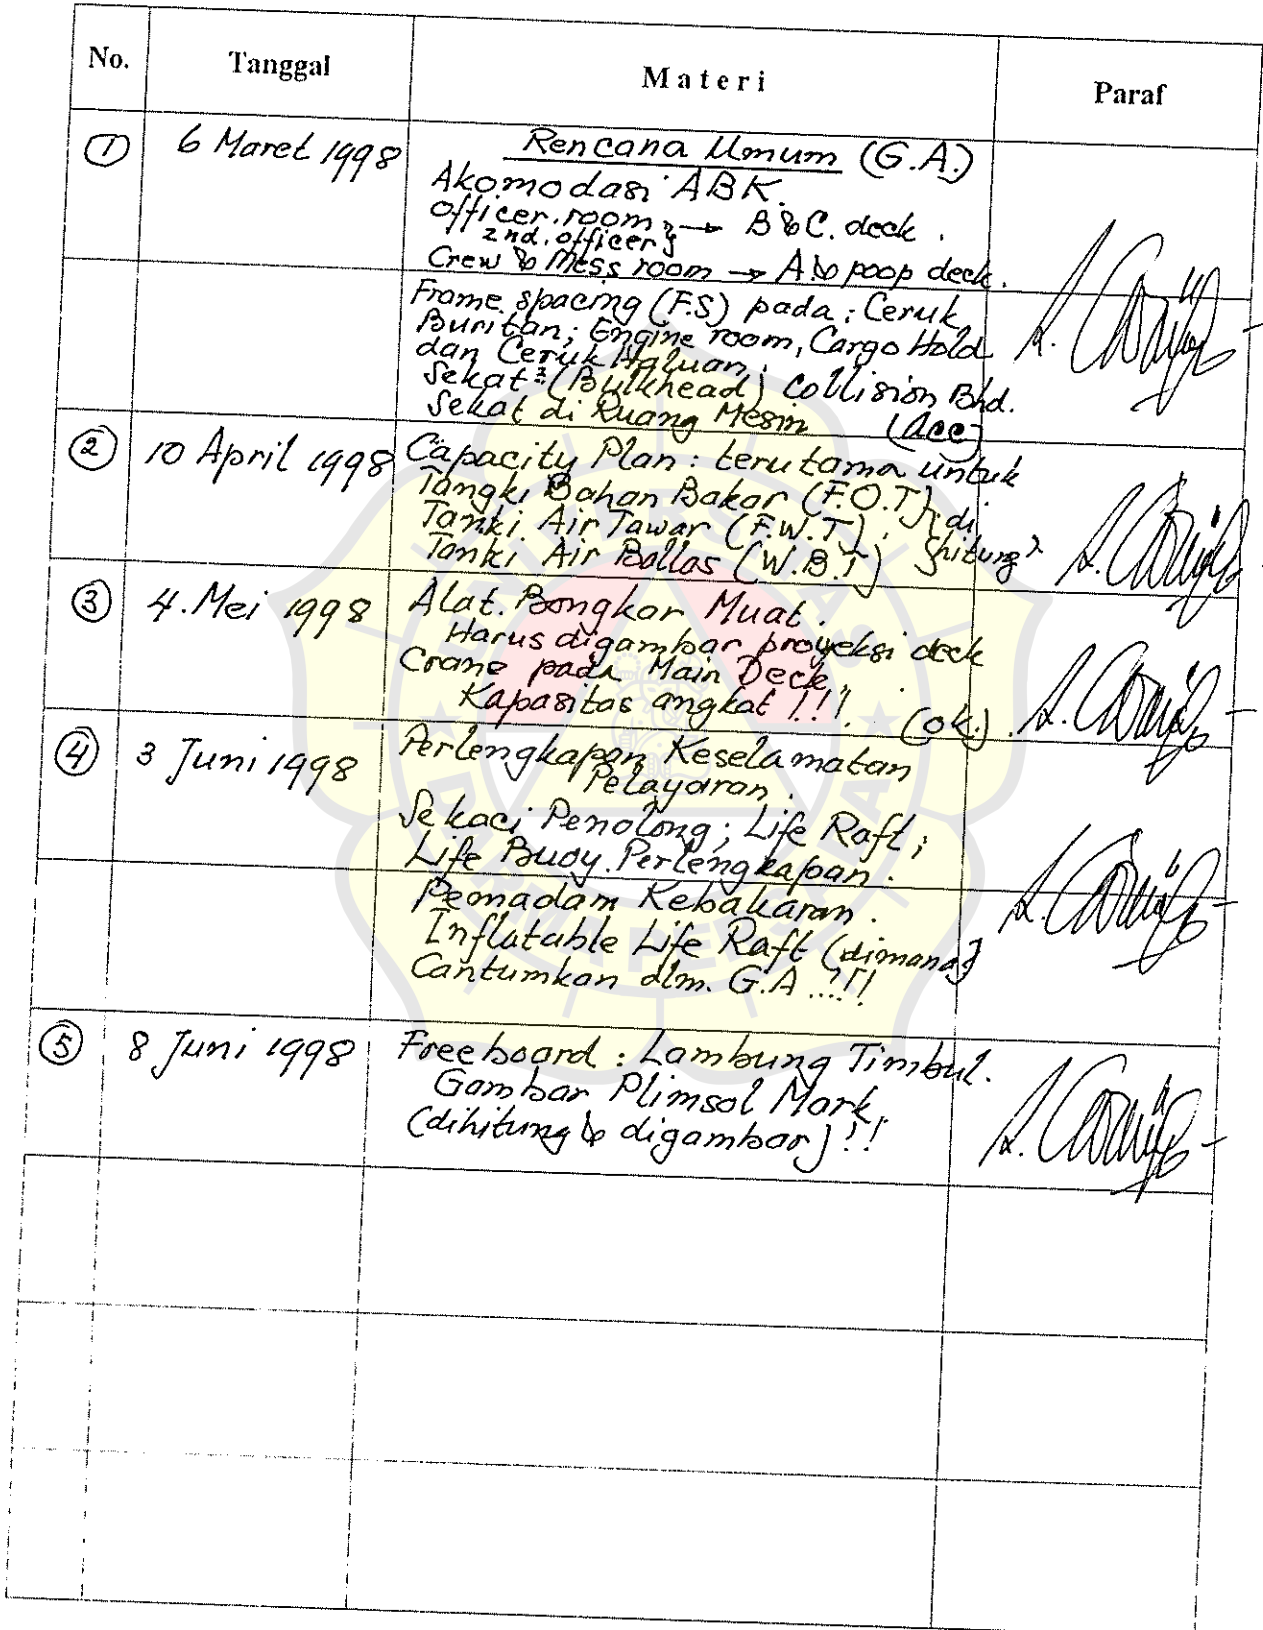 No. Tanggal Materi Paraf
① 6 Maret 1998 Rencana Umum (G.A.)
Akomodasi ABK.
officer.room } → B & C. deck.
2nd. officer }
Crew & Mess room → A & poop deck.
Frame spacing (F.S) pada : Ceruk
Buritan; Engine room, Cargo Hold
dan Ceruk Haluan.
Sekat² (Bulkhead) Collision Bhd.
Sekat di Ruang Mesin (Acc)
② 10 April 1998 Capacity Plan : terutama untuk
Tangki Bahan Bakar (F.O.T) } di
Tanki Air Tawar (F.W.T) } hitung²
Tanki Air Ballas (W.B.T)
③ 4. Mei 1998 Alat. Bongkar Muat.
Harus digambar proyeksi deck
Crane pada Main Deck,
Kapasitas angkat !!! (ok.)
④ 3 Juni 1998 Perlengkapan Keselamatan
Pelayaran.
Sekoci Penolong; Life Raft;
Life Buoy. Perlengkapan.
Pemadam Kebakaran.
Inflatable Life Raft (dimana?)
Cantumkan dlm. G.A ...?!!
⑤ 8 Juni 1998 Freeboard : Lambung Timbul.
Gambar Plimsol Mark
(dihitung & digambar) !!